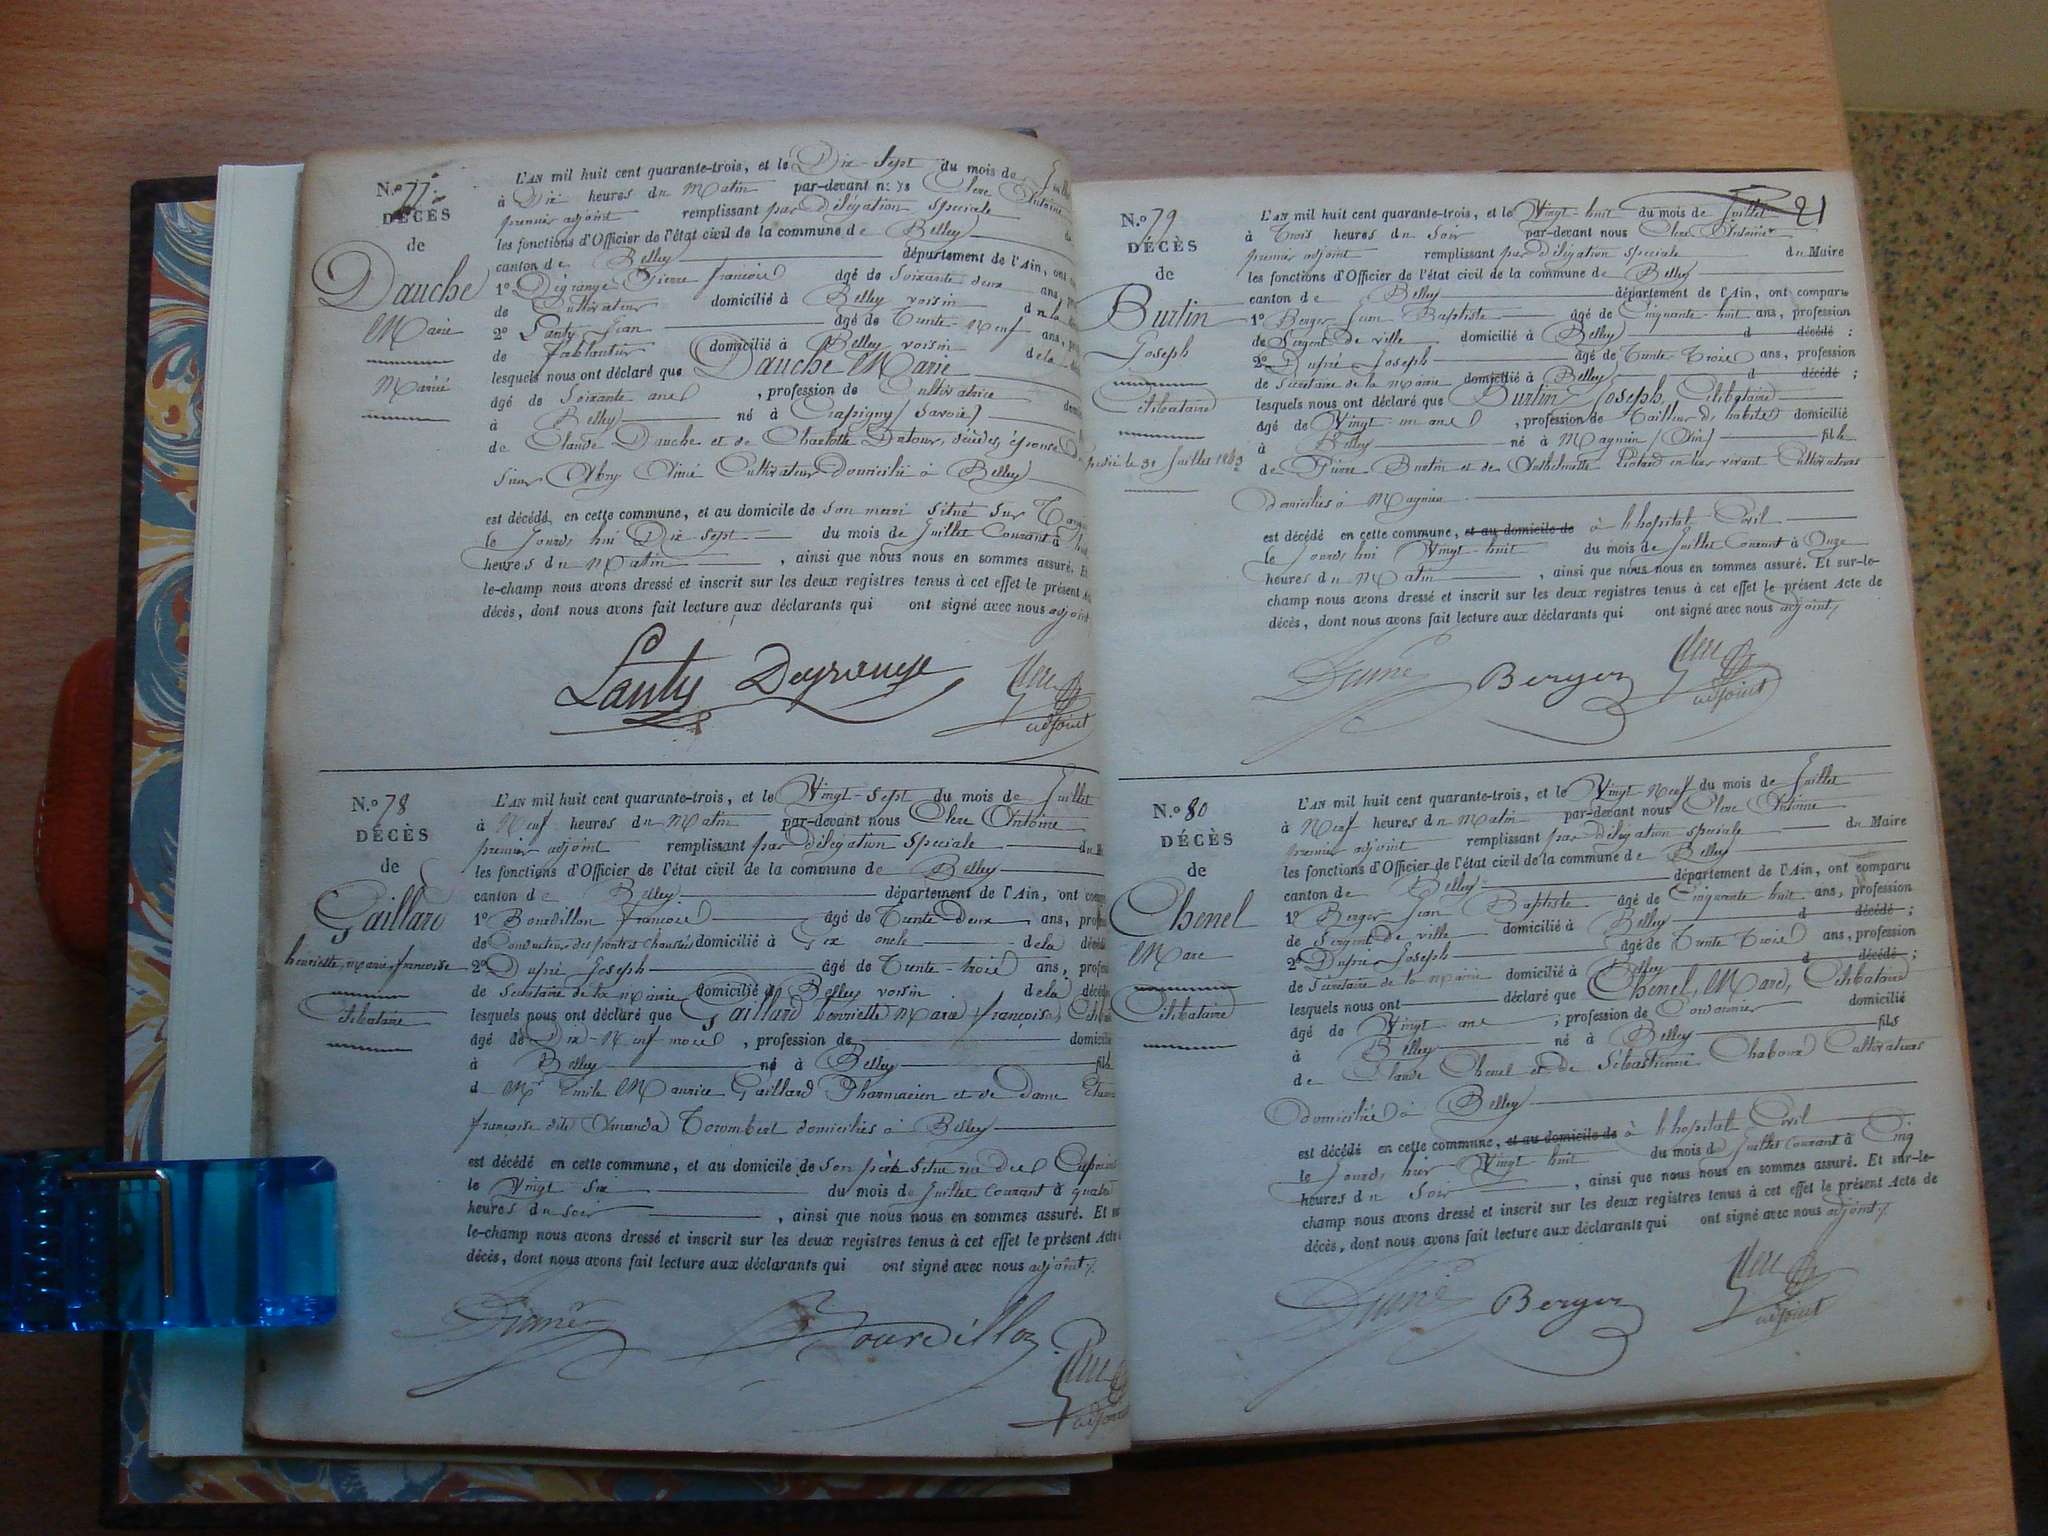 N.º 77.
DÉCÈS
de
Dauche
Marie
Mariée
L'AN mil huit cent quarante-trois, et le Dix-Sept du mois de
à Dix heures du Matin par-devant nous Clerc Antoine
premier adjoint remplissant par délégation speciale
les fonctions d'Officier de l'état civil de la commune de Belley
canton de Belley département de l'Ain, ont
1º Dégrange Pierre françois âgé de Soixante deux ans,
de Cultivateur domicilié à Belley voisin de la
2º Lanty Jean âgé de Trente-Neuf ans,
de ferblantier domicilié à Belley voisin de la
lesquels nous ont déclaré que Dauche Marie
âgé de Soixante ans, profession de Cultivatrice
à Belley né à (Savoie)
de Claude Dauche et de Charlotte décédés, épouse
Sieur Abry Aimé Cultivateur Domicilié à Belley
est décédé en cette commune, et au domicile de son mari situé sur
le jourd'hui Dix Sept du mois de Juillet Courant à
heures du Matin, ainsi que nous nous en sommes assuré. Et
le-champ nous avons dressé et inscrit sur les deux registres tenus à cet effet le présent
décès, dont nous avons fait lecture aux déclarants qui ont signé avec nous adjoint
Lanty Degrange Clerc
adjoint
N.º 78
DÉCÈS
de
Gaillard
henriette, marie, françoise
Célibataire
L'AN mil huit cent quarante-trois, et le Vingt-Sept du mois de Juillet
à Neuf heures du Matin par-devant nous Clerc Antoine
premier adjoint remplissant par délégation speciale du
les fonctions d'Officier de l'état civil de la commune de Belley
canton de Belley département de l'Ain, ont
1º Bourdillon françois âgé de Trente Deux ans,
de Conducteur des ponts et chaussées domicilié à Gex oncle de la
2º Dupré Joseph âgé de Trente-trois ans,
de Secrétaire de la Mairie domicilié à Belley voisin de la
lesquels nous ont déclaré que Gaillard henriette Marie françoise,
âgé de Dix-Neuf mois, profession de
à Belley né à Belley
d Mr Emile Maurice Gaillard Pharmacien et de dame
françoise dite Amanda Torombert domiciliés à Belley
est décédé en cette commune, et au domicile de son père situé rue des
le Vingt Six du mois de Juillet Courant à
heures du soir, ainsi que nous nous en sommes assuré. Et
le-champ nous avons dressé et inscrit sur les deux registres tenus à cet effet le présent Acte
décès, dont nous avons fait lecture aux déclarants qui ont signé avec nous adjoint
Bourdillon Clerc
adjoint
21
N.º 79
DÉCÈS
de
Burtin
Joseph
Célibataire
le 31 Juillet 1843
L'AN mil huit cent quarante-trois, et le Vingt-huit du mois de Juillet
à Trois heures du Soir par-devant nous Clerc Antoine
premier adjoint remplissant par délégation speciale du Maire
les fonctions d'Officier de l'état civil de la commune de Belley
canton de Belley département de l'Ain, ont comparu
1º Berger Jean Baptiste âgé de Cinquante-huit ans, profession
de Sergent de ville domicilié à Belley d décédé ;
2º Dupré Joseph âgé de Trente-Trois ans, profession
de Secrétaire de la Mairie domicilié à Belley d décédé ;
lesquels nous ont déclaré que Burtin Joseph, Célibataire
âgé de Vingt-un ans, profession de Tailleur d'habits domicilié
à Belley né à Magnieu (Ain) fils
de Pierre Burtin et de Anthelmette en leur vivant Cultivateurs
domiciliés à Magnieu
est décédé en cette commune, et au domicile de à l'hopital Civil
le Jourd'hui Vingt-huit du mois de Juillet Courant à Onze
heures du Matin, ainsi que nous nous en sommes assuré. Et sur-le-
champ nous avons dressé et inscrit sur les deux registres tenus à cet effet le présent Acte de
décès, dont nous avons fait lecture aux déclarants qui ont signé avec nous adjoint
Berger Clerc
adjoint
N.º 80
DÉCÈS
de
Chenel
Marc
Célibataire
L'AN mil huit cent quarante-trois, et le Vingt-Neuf du mois de Juillet
à Neuf heures du Matin par-devant nous Clerc Antoine
premier adjoint remplissant par délégation speciale du Maire
les fonctions d'Officier de l'état civil de la commune de Belley
canton de Belley département de l'Ain, ont comparu
1º Berger Jean Baptiste âgé de Cinquante huit ans, profession
de Sergent de ville domicilié à Belley d décédé ;
2º Dupré Joseph âgé de Trente Trois ans, profession
de Secrétaire de la Mairie domicilié à Belley d décédé ;
lesquels nous ont déclaré que Chenel, Marc, Célibataire
âgé de Vingt ans ; profession de Cordonnier domicilié
à Belley né à Belley fils
de Claude Chenel et de Sébastienne Chaboud Cultivateurs
Domiciliés à Belley
est décédé en cette commune, et au domicile de à l'hopital Civil
le Jourd'hier Vingt huit du mois de Juillet Courant à Cinq
heures du Soir, ainsi que nous nous en sommes assuré. Et sur-le-
champ nous avons dressé et inscrit sur les deux registres tenus à cet effet le présent Acte de
décès, dont nous avons fait lecture aux déclarants qui ont signé avec nous adjoint
Berger Clerc
adjoint